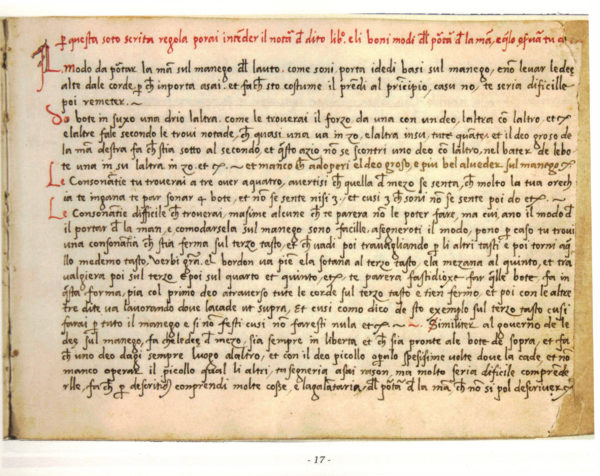 per questa soto scrita regola porai inteder il nota d dito libº. e li boni modi dl pota d la ma, e qlo
L modo da portar la man sul manego dl lauto. come soni, porta i dedi basi sul manego, e nō levar le dee
alte dale corde, p ch inporta asai. et fa ch sto costume il predi al pricipio, casu no, te seria dificille
poi remeter. ~
Do bote in suxo una drio laltra. come le troverai il forzo da una con un deo, laltra cō laltro. et
e laltre fale secondo le trovi notade, ch quasi una va in zo, e laltra insu, tute quate et il deo groso de
la ma destra fa ch stia sotto al secondo, et qsto azio no se scontri uno deo cō laltro, nel bater de le bo
te una in su laltra in zo. et manco ch adoperi el deo groso, e piu bel alveder. sul manego
Le consonatie tu troverai a tre over a quatro, avertisi ch quella d mezo se senta, ch molto la tua orech
ia te ingana te par sonar 4 bote, et non se sente nisi 3. et cusi 3 ch soni no se sente poi do et
Le Consonatie difficile ch troverai, masime alcune ch te parera no le poter fare, ma cui ano il modo d
il portar dla man, e comodarsela sul manego sono facille, asegneroti il modo, pono p caso tu trovi
una consonatia ch stia ferma sul terzo tasto, et ch vadi poi travagliando p li altri tasti e poi torni aq
llo medemo tasto. Verbi gra. el bordon va pia e la sotana al terzo tasto, la mezana al quinto, et tra
valgiera poi sul terzo. E poi sul quarto et quinto, et te parera fastidioxe far qlle bote. fa in
qsta forma, pia col primo deo atraverso tute le corde sul terzo tasto e tien fermo, et poi con le altre
tre dite va lavorando dove lacade ut supra, Et cusi como dico de sto exemplo sul terzo tasto cusi
farai p tuto il manego e si nō festi cusi nō faresti nula et ~ Similiter al governo de le
dee sul manego, fa ch el deo d mezo, sia sempre in liberta et ch sia pronte ale bote de sopra, et fa
ch uno deo dagi sempre luogo alaltro, et con il deo picollo opalo spesisime volte dove la cade, et no
manco operar il picollo qual li altri, tasegneria asai rason, ma molto seria dificile comprede
rlle, fa ch p deseritio conprendi molte cosse, e la galataria, dl porta d la ma ch no si pol deseriver
- 17 -